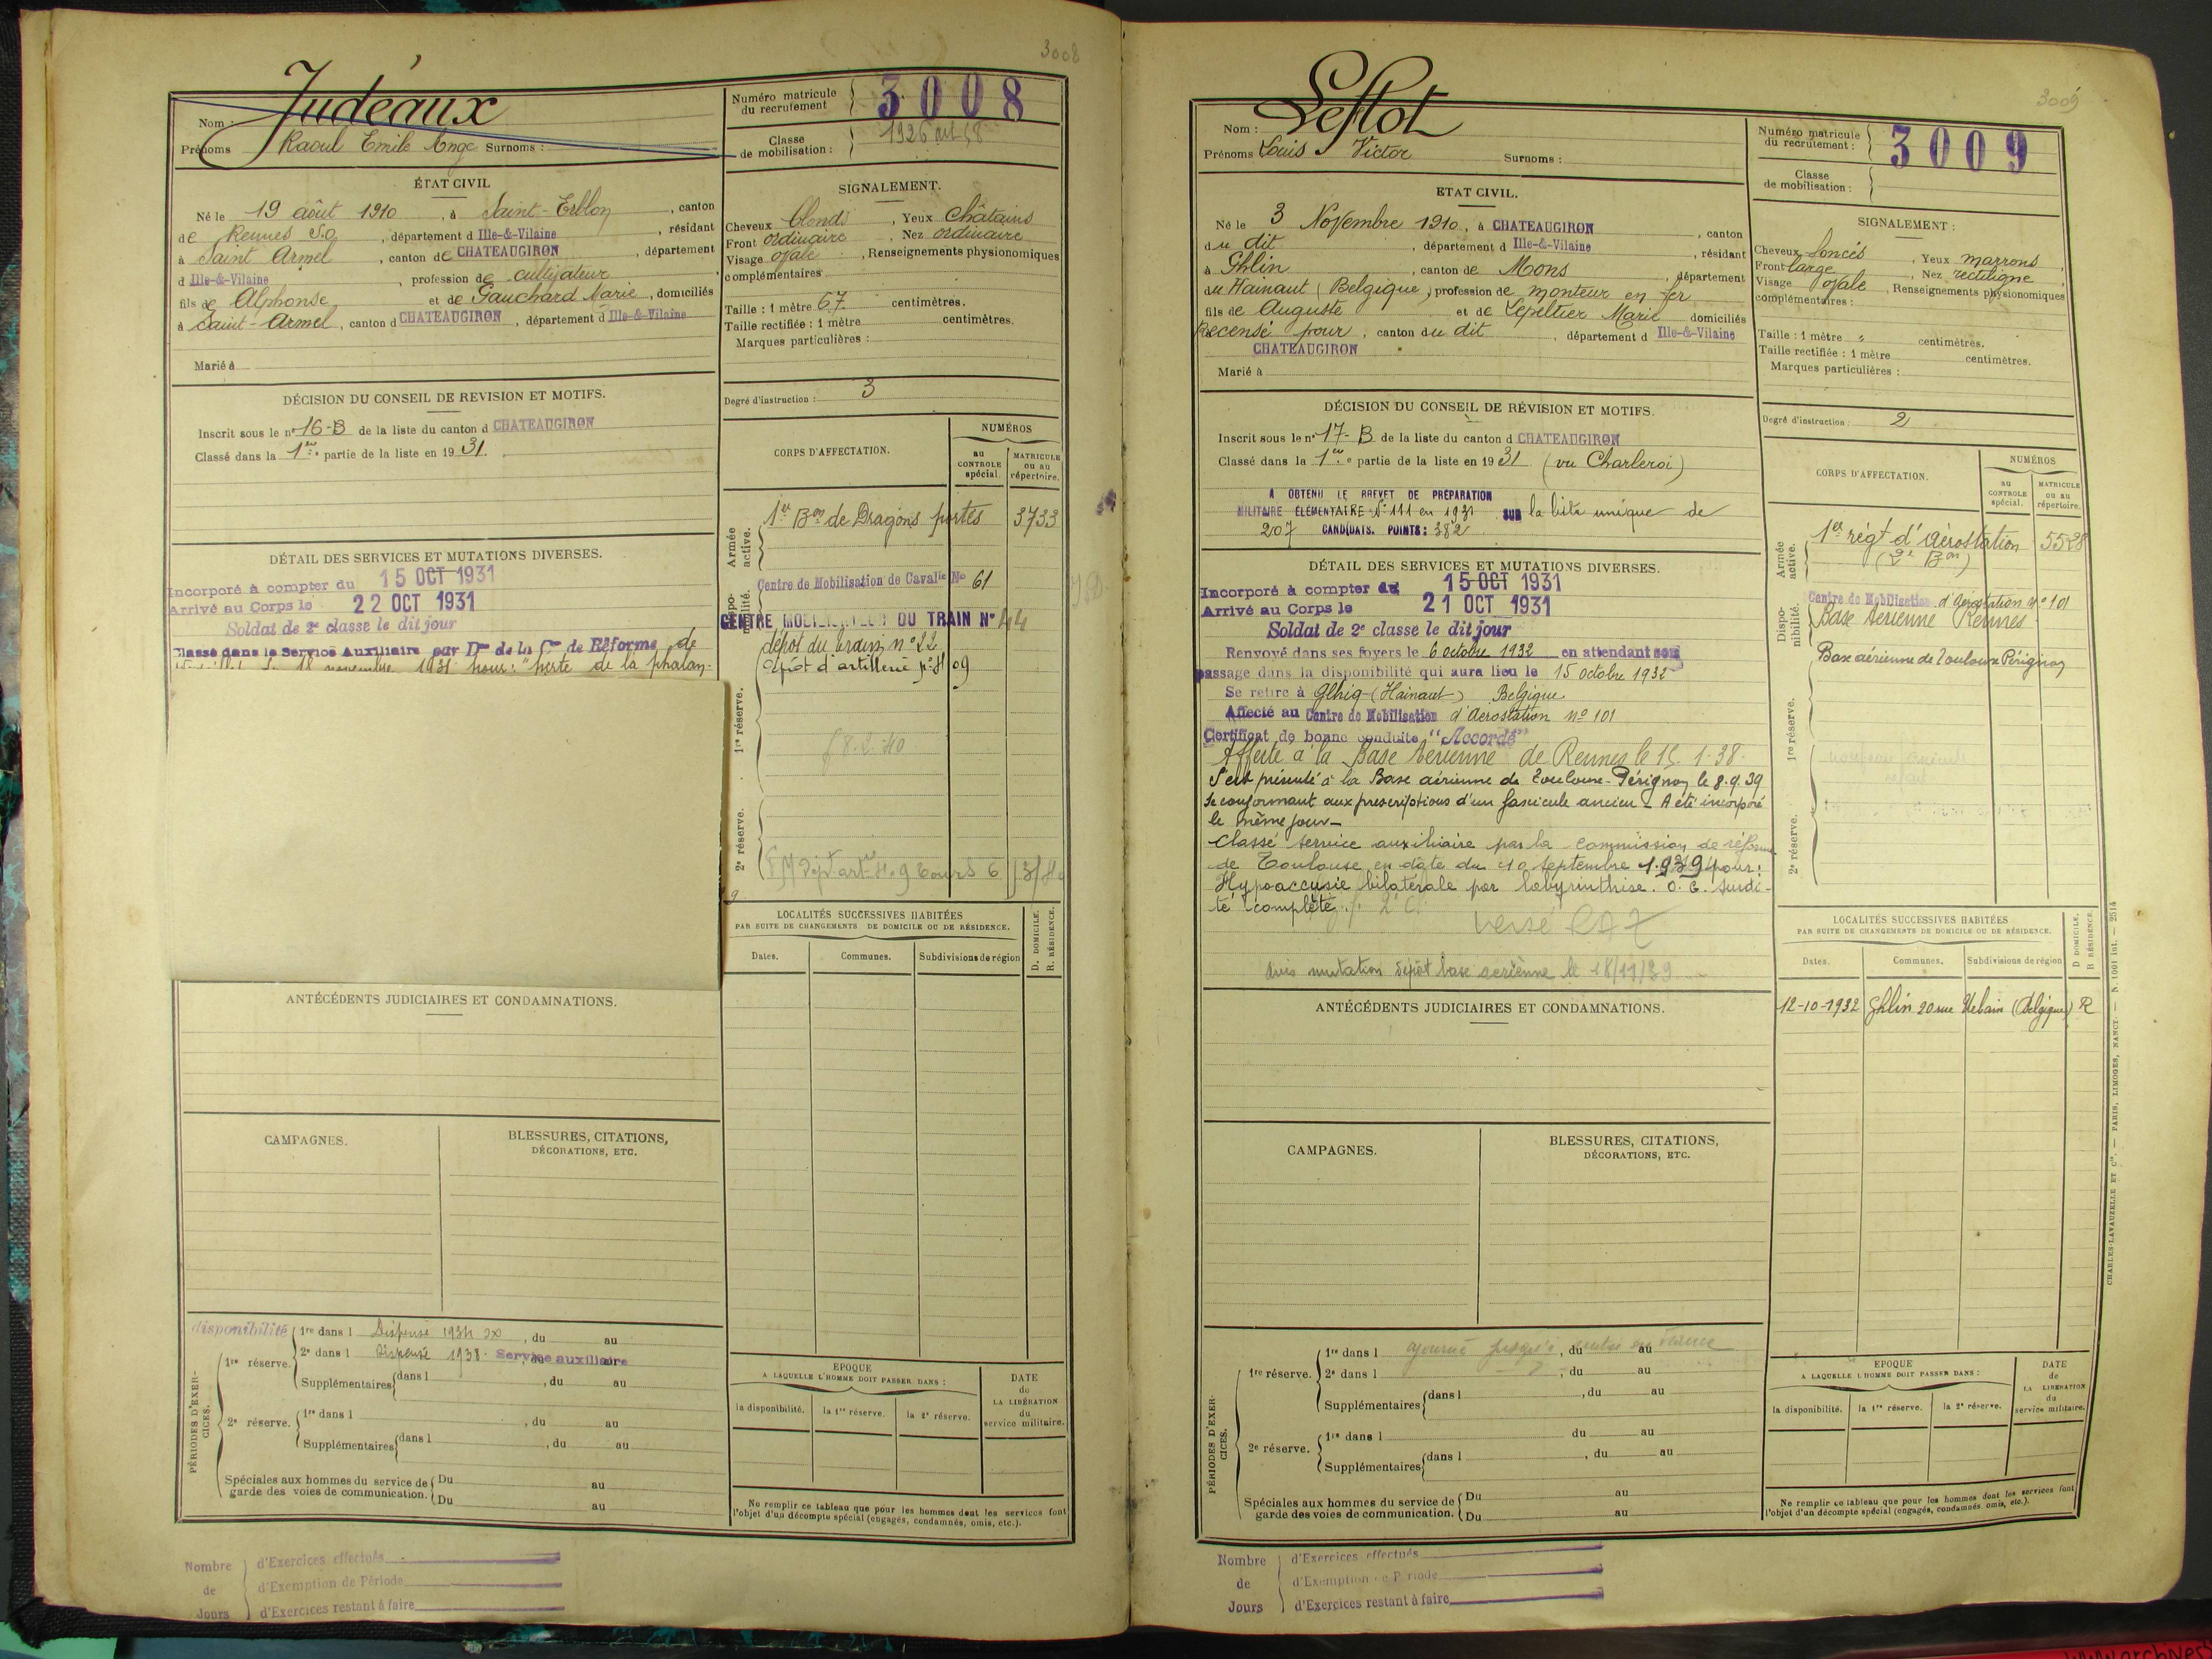 3008
Judéaux
Nom :
Prénoms Raoul Emile Ange Surnoms :
Numéro matricule du recrutement 3008
Classe de mobilisation : 1926
ÉTAT CIVIL
Né le 19 août 1910, à Saint-Erblon, canton
de Rennes S.O, département d Ille-&-Vilaine, résidant
à Saint Armel, canton de CHATEAUGIRON, département
d Ille-&-Vilaine, profession de cultivateur
fils de Alphonse et de Gauchard Marie, domiciliés
à Saint-Armel, canton d CHATEAUGIRON, département d Ille-&-Vilaine
Marié à
SIGNALEMENT.
Cheveux blonds, Yeux châtains
Front ordinaire, Nez ordinaire
Visage ovale, Renseignements physionomiques
complémentaires
Taille : 1 mètre 67 centimètres.
Taille rectifiée : 1 mètre centimètres.
Marques particulières :
Degré d'instruction : 3
DÉCISION DU CONSEIL DE REVISION ET MOTIFS.
Inscrit sous le nº 16-B de la liste du canton d CHATEAUGIRON
Classé dans la 1re partie de la liste en 1931.
DÉTAIL DES SERVICES ET MUTATIONS DIVERSES.
Incorporé à compter du 15 OCT 1931
Arrivé au Corps le 22 OCT 1931
Soldat de 2e classe le dit jour
Classé dans le Service Auxiliaire par Don de la Con de Réforme de
18 novembre 1931 pour: "perte de la phalan-
CORPS D'AFFECTATION.
NUMÉROS
au CONTROLE spécial.
MATRICULE ou au répertoire.
Armée active.
1er Bon de Dragons portés 3733
Disponibilité.
Centre de Mobilisation de Cavalie No 61
CENTRE MOBILISATEUR DU TRAIN No 44
dépôt du train nº 22
dépôt d'artillerie nº 409
1re réserve.
8.2.40
2e réserve.
LOCALITÉS SUCCESSIVES HABITÉES
PAR SUITE DE CHANGEMENTS DE DOMICILE OU DE RÉSIDENCE.
D. DOMICILE.
R. RÉSIDENCE.
Dates. Communes. Subdivisions de région
ANTÉCÉDENTS JUDICIAIRES ET CONDAMNATIONS.
CAMPAGNES.
BLESSURES, CITATIONS,
DÉCORATIONS, ETC.
PÉRIODES D'EXERCICES.
disponibilité
1re réserve. 1re dans l Dispensé 1934, du au
2e dans l Dispensé 1938 Service auxiliaire
Supplémentaires dans l, du au
2e réserve. 1re dans l, du au
Supplémentaires dans l, du au
Spéciales aux hommes du service de garde des voies de communication. Du au
Du au
EPOQUE
A LAQUELLE L'HOMME DOIT PASSER DANS :
la disponibilité. la 1re réserve. la 2e réserve.
DATE de LA LIBÉRATION du service militaire.
Ne remplir ce tableau que pour les hommes dont les services font
l'objet d'un décompte spécial (engagés, condamnés, omis, etc.).
Nombre de Jours
d'Exercices effectués
d'Exemption de Période
d'Exercices restant à faire
3009
Leflot
Nom :
Prénoms Louis Victor Surnoms :
Numéro matricule du recrutement : 3009
Classe de mobilisation :
ETAT CIVIL.
Né le 3 Novembre 1910, à CHATEAUGIRON, canton
du dit, département d Ille-&-Vilaine, résidant
à Ghlin, canton de Mons, département
du Hainaut (Belgique) profession de monteur en fer
fils de Auguste et de Lepeltier Marie domiciliés
Recensé pour, canton du dit, département d Ille-&-Vilaine
CHATEAUGIRON
Marié à
SIGNALEMENT :
Cheveux foncés, Yeux marrons,
Front large, Nez rectiligne,
Visage ovale, Renseignements physionomiques
complémentaires :
Taille : 1 mètre " centimètres.
Taille rectifiée : 1 mètre centimètres.
Marques particulières :
Degré d'instruction : 2
DÉCISION DU CONSEIL DE RÉVISION ET MOTIFS.
Inscrit sous le nº 17-B de la liste du canton d CHATEAUGIRON
Classé dans la 1re partie de la liste en 1931 (vu Charleroi)
A OBTENU LE BREVET DE PRÉPARATION
MILITAIRE ÉLÉMENTAIRE Nº 111 en 1931 SUR la liste unique de
207 CANDIDATS. POINTS : 382
DÉTAIL DES SERVICES ET MUTATIONS DIVERSES.
Incorporé à compter du 15 OCT 1931
Arrivé au Corps le 21 OCT 1931
Soldat de 2e classe le dit jour
Renvoyé dans ses foyers le 6 octobre 1932 en attendant son
passage dans la disponibilité qui aura lieu le 15 octobre 1932
Se retire à Glhig (Hainaut) Belgique
Affecté au Centre de Mobilisation d'Aérostation nº 101
Certificat de bonne conduite "Accordé"
Affecté à la Base Aérienne de Rennes le 15.1.38.
S'est présenté à la Base aérienne de Toulouse-Pérignon le 8.9.39
se conformant aux prescriptions d'un fascicule ancien - A été incorporé
le même jour -
Classé service auxiliaire par la commission de réforme
de Toulouse en date du 10 septembre 1939 pour :
Hypoaccusie bilatérale par labyrinthise. O.G. surdi-
té complète.
versé
avis mutation dépôt base aérienne le 18/11/39
CORPS D'AFFECTATION.
NUMÉROS
au CONTROLE spécial.
MATRICULE ou au répertoire.
Armée active.
1er régt d'aérostation 5528
(2e Bon)
Disponibilité.
Centre de Mobilisation d'Aérostation nº 101
Base Aérienne Rennes
Base aérienne de Toulouse Pérignon
1re réserve.
2e réserve.
LOCALITÉS SUCCESSIVES HABITÉES
PAR SUITE DE CHANGEMENTS DE DOMICILE OU DE RÉSIDENCE.
D DOMICILE.
R RÉSIDENCE.
Dates. Communes. Subdivisions de région
12-10-1932 Ghlin 20 rue Urbain (Belgique) R
ANTÉCÉDENTS JUDICIAIRES ET CONDAMNATIONS.
CAMPAGNES.
BLESSURES, CITATIONS,
DÉCORATIONS, ETC.
PÉRIODES D'EXERCICES.
1re réserve. 1re dans l ajourné jusqu'à, du rentrée au France
2e dans l, du au
Supplémentaires dans l, du au
2e réserve. 1re dans l du au
Supplémentaires dans l, du au
Spéciales aux hommes du service de garde des voies de communication. Du au
Du au
EPOQUE
A LAQUELLE L'HOMME DOIT PASSER DANS :
la disponibilité. la 1re réserve. la 2e réserve.
DATE de LA LIBÉRATION du service militaire.
Ne remplir ce tableau que pour les hommes dont les services font
l'objet d'un décompte spécial (engagés, condamnés, omis, etc.).
Nombre de Jours
d'Exercices effectués
d'Exemption de Période
d'Exercices restant à faire
CHARLES-LAVAUZELLE ET Cie. — PARIS, LIMOGES, NANCY. — N. 1001 int. — 2514